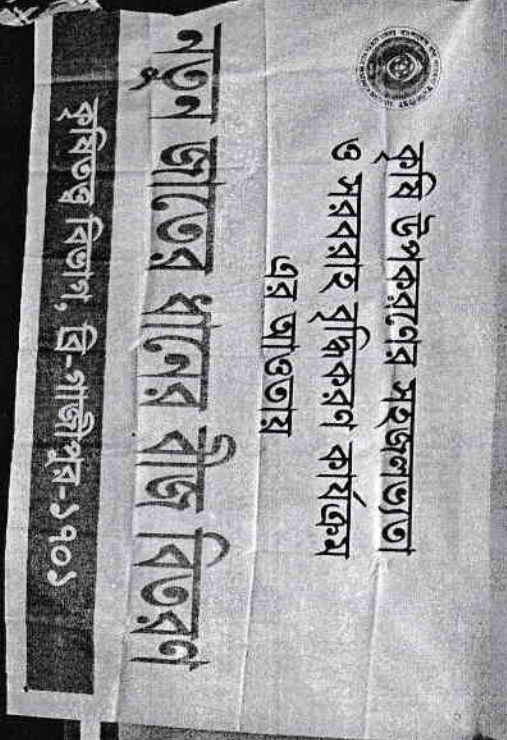 কৃষি উপকরণের সহজলভ্যতা
ও সরবরাহ বৃদ্ধিকরণ কার্যক্রম
এর আওতায়
নতুন জাতের ধানের বীজ বিতরণ
কৃষিতত্ত্ব বিভাগ, ব্রি-গাজীপুর-১৭০১